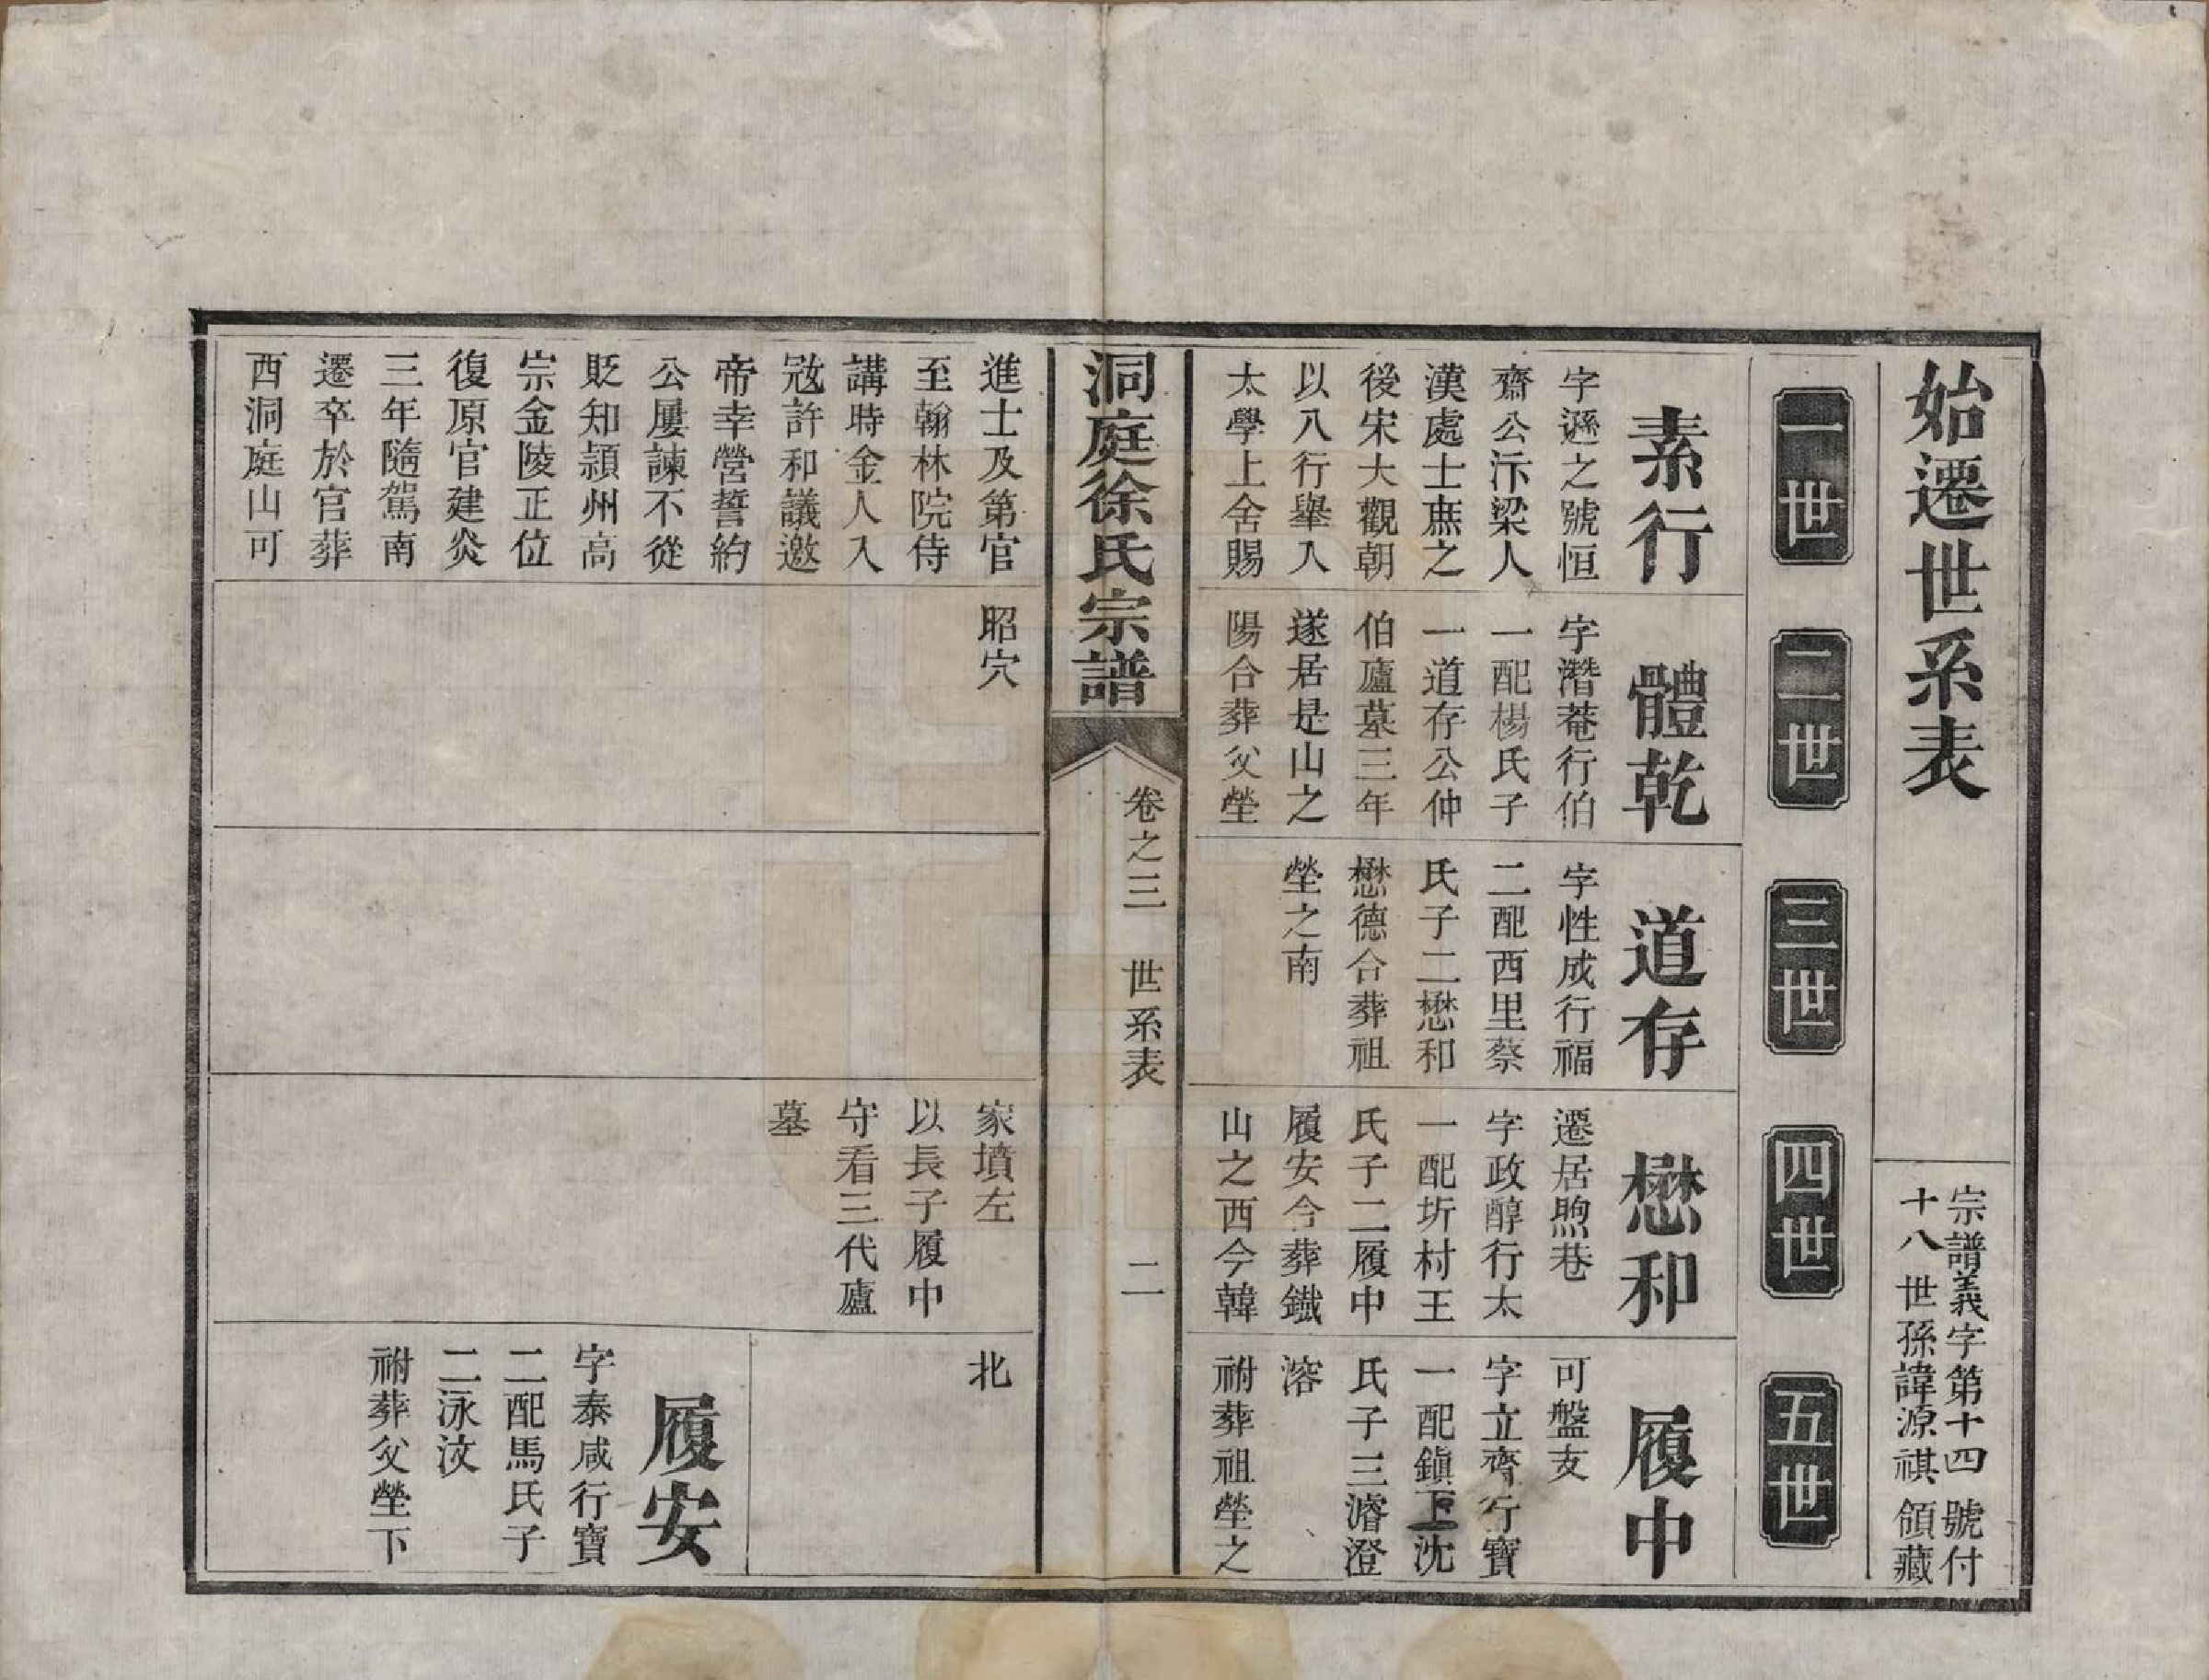 始遷世系表
宗譜義字第十四號付
十八世孫諱源祺領藏
一世
二世
三世
四世
五世
素行
字遜之號恒
齋公汴梁人
漢處士庶之
後宋大觀朝
以八行舉入
太學上舍賜
體乾
字潛菴行伯
一配楊氏子
一道存公仲
伯廬墓三年
遂居是山之
陽合葬父塋
道存
字性成行福
二配西里蔡
氏子二懋和
懋德合葬祖
塋之南
懋和
遷居煦巷
字政醇行太
一配圻村王
氏子二履中
履安合葬鐵
山之西今韓
履中
可盤支
字立齊行寶
一配鎮下沈
氏子三濬澄
溶
祔葬祖塋之
洞庭徐氏宗譜
卷之三 世系表 二
進士及第官
至翰林院侍
講時金人入
寇許和議邀
帝幸營誓約
公屢諫不從
貶知潁州高
宗金陵正位
復原官建炎
三年隨駕南
遷卒於官葬
西洞庭山可
昭穴
家墳左
以長子履中
守看三代廬
墓
北
履安
字泰咸行寶
二配馬氏子
二泳汶
祔葬父塋下